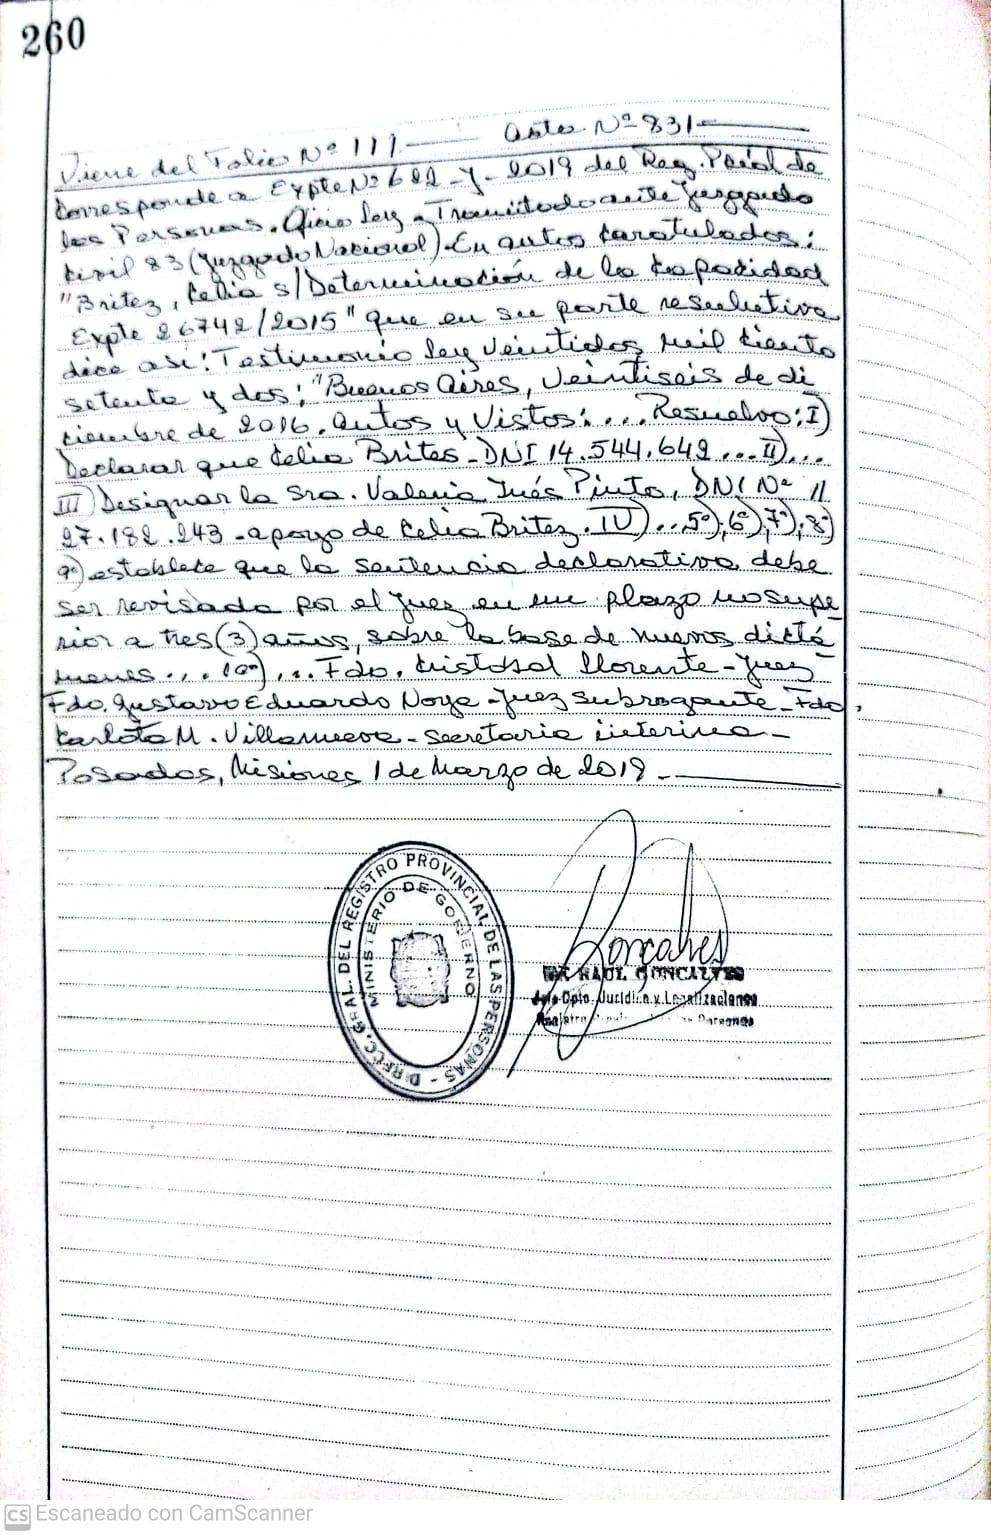 260
Viene del Folio Nº 111 — Acta Nº 831 —
Corresponde a Expte Nº 622 - Y - 2019 del Reg. Pcial de
las Personas. Oficio Ley - Tramitado ante Juzgado
Civil 83 (Juzgado Nacional). En autos caratulados:
"Britez, Celia s/ Determinación de la Capacidad
Expte 26742/2015" que en su parte resolutiva
dice asi: Testimonio Ley Veintidos mil ciento
setenta y dos: "Buenos Aires, Veintiseis de di
ciembre de 2016. Autos y Vistos: ... Resuelvo: I)
Declarar que Celia Brites - DNI 14.544.642 ... II) ...
III) Designar la Sra. Valeria Inés Pinto, DNI Nº 11
27.182.243 - apoyo de Celia Britez. IV) .. 5º); 6º); 7º); 8º)
9º) establece que la sentencia declarativa debe
ser revisada por el Juez en un plazo no supe-
rior a tres (3) años, sobre la base de nuevos dictá-
menes ... 10º) ... Fdo. Cristobal Llorente - Juez
Fdo. Gustavo Eduardo Noya - Juez Subrogante - Fdo.
Carlota M. Villanueva - Secretaria interina -
Posadas, Misiones 1 de Marzo de 2019. —
DIRECC. GRAL. DEL REGISTRO PROVINCIAL DE LAS PERSONAS -
MINISTERIO DE GOBIERNO
Goncalves
DR. RAUL GONCALVES
Jefe Dpto. Juridico y Legalizaciones
Registro Personas
CS Escaneado con CamScanner